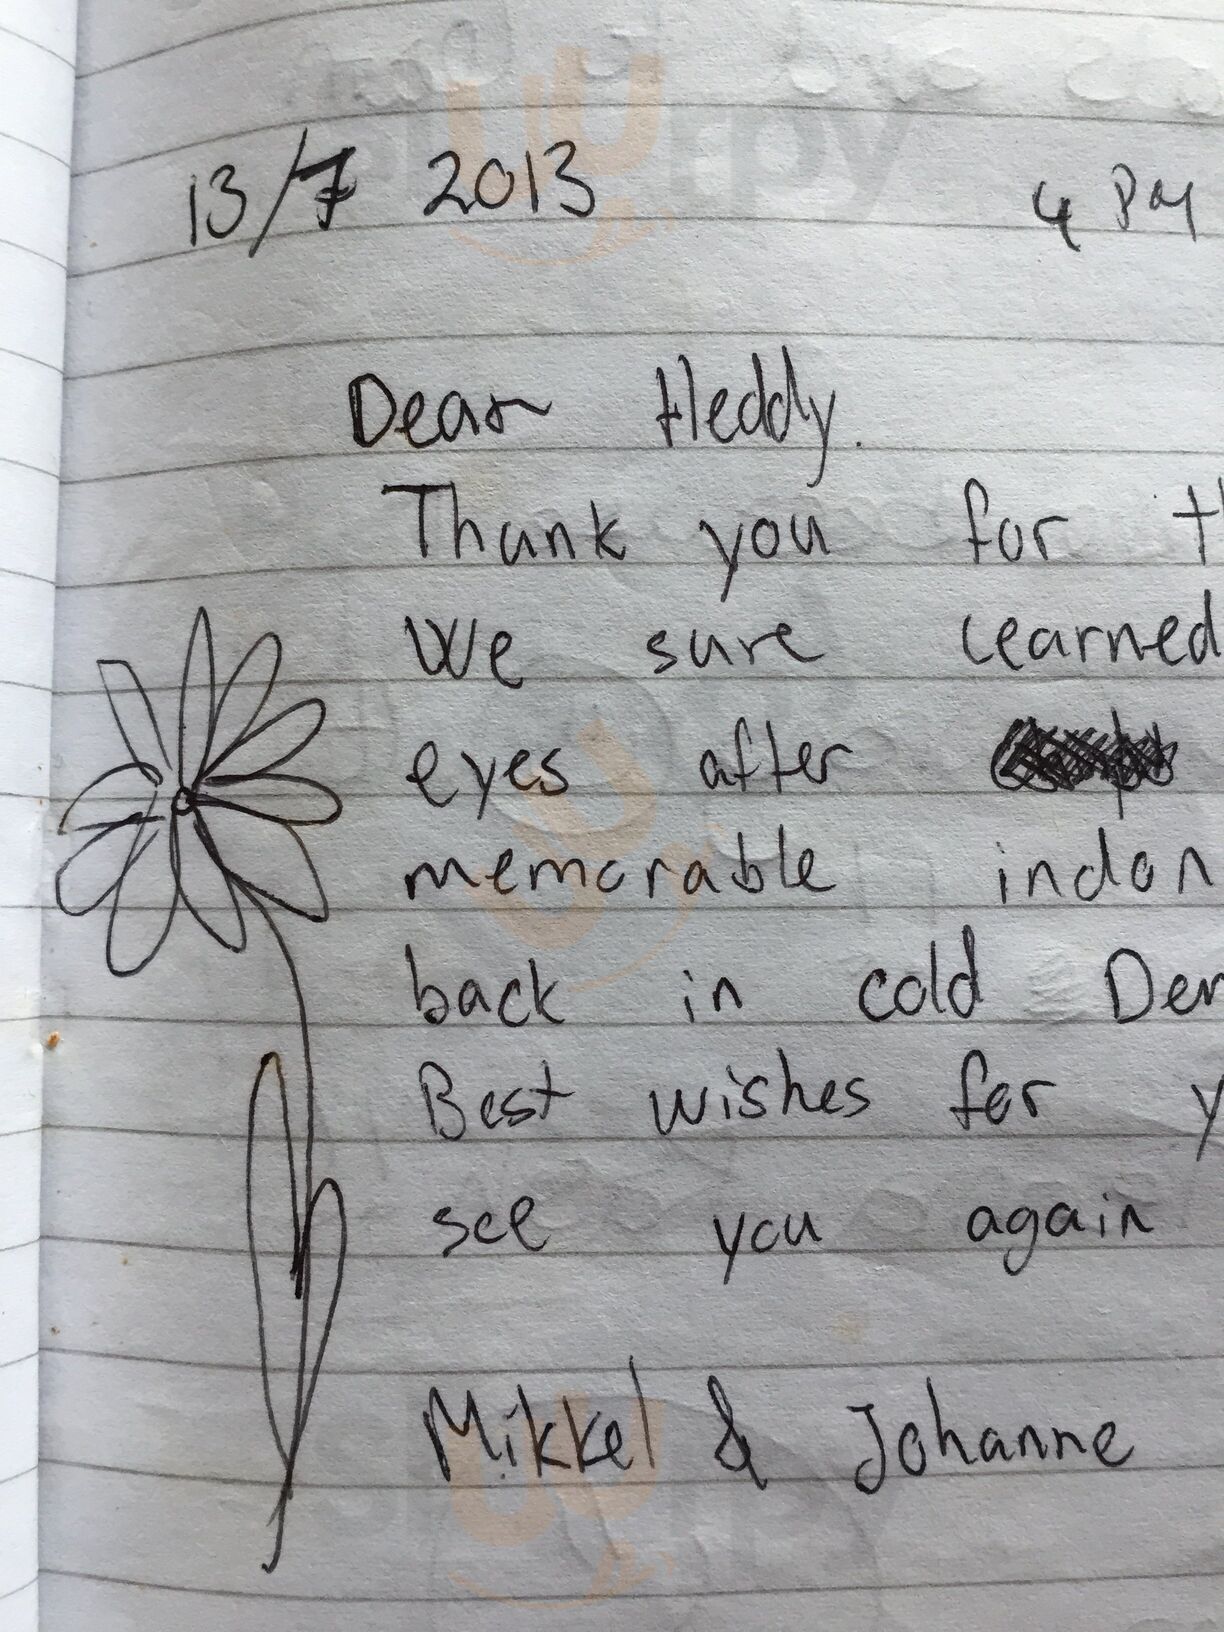 13/7 2013 4 PM
Dear Heddy.
Thank you for
We sure learned
eyes after
memorable indon
back in cold Den
Best wishes for y
see you again
Mikkel & Johanne